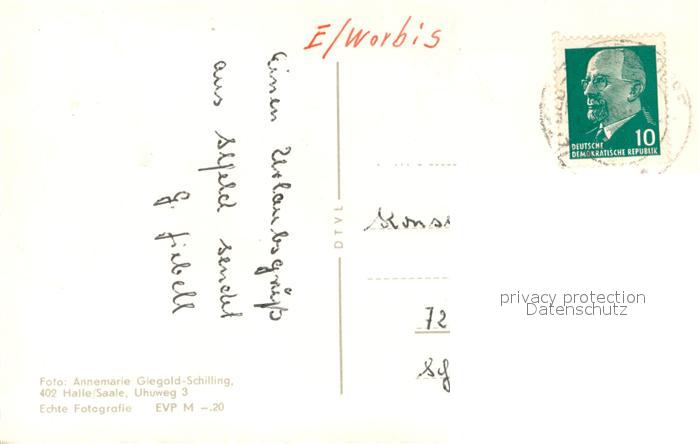 E/Worbis
Einen Urlaubsgrüß
aus Ilfeld sendet
G. Fiebell
DTVL
10
DEUTSCHE
DEMOKRATISCHE REPUBLIK
Konss
72
privacy protection
Datenschutz
Foto: Annemarie Giegold-Schilling,
402 Halle/Saale, Uhuweg 3
Echte Fotografie EVP M –.20